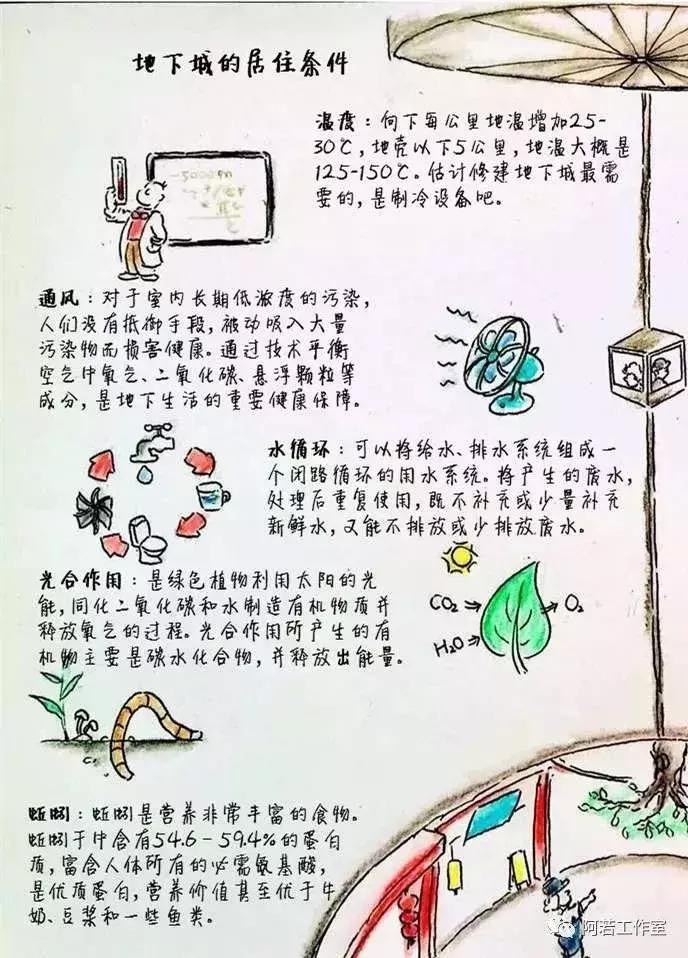 地下城的居住条件
温度：向下每公里地温增加25-
30℃，地壳以下5公里，地温大概是
125-150℃。估计修建地下城最需
要的，是制冷设备吧。
-5000m
通风：对于室内长期低浓度的污染，
人们没有抵御手段，被动吸入大量
污染物而损害健康。通过技术平衡
空气中氧气、二氧化碳、悬浮颗粒等
成分，是地下生活的重要健康保障。
水循环：可以将给水、排水系统组成一
个闭路循环的用水系统。将产生的废水，
处理后重复使用，既不补充或少量补充
新鲜水，又能不排放或少排放废水。
光合作用：是绿色植物利用太阳的光
能，同化二氧化碳和水制造有机物质并
释放氧气的过程。光合作用所产生的有
机物主要是碳水化合物，并释放出能量。
CO2
O2
H2O
蚯蚓：蚯蚓是营养非常丰富的食物。
蚯蚓干中含有54.6-59.4%的蛋白
质，富含人体所有的必需氨基酸，
是优质蛋白，营养价值甚至优于牛
奶、豆浆和一些鱼类。
阿若工作室